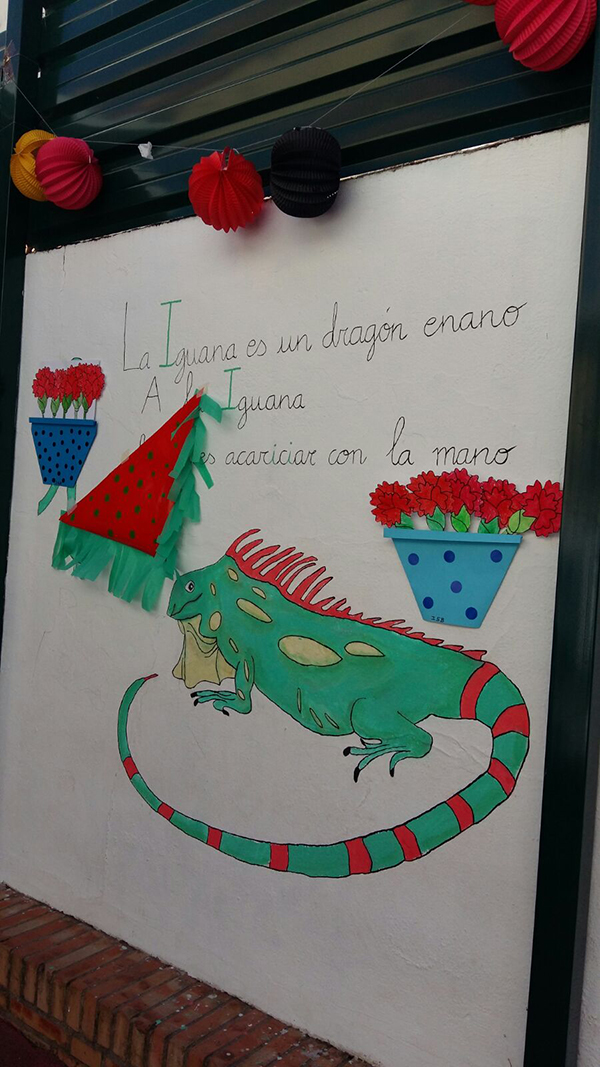 La Iguana es un dragón enano
A la Iguana
acariciar con la mano
J.S.B